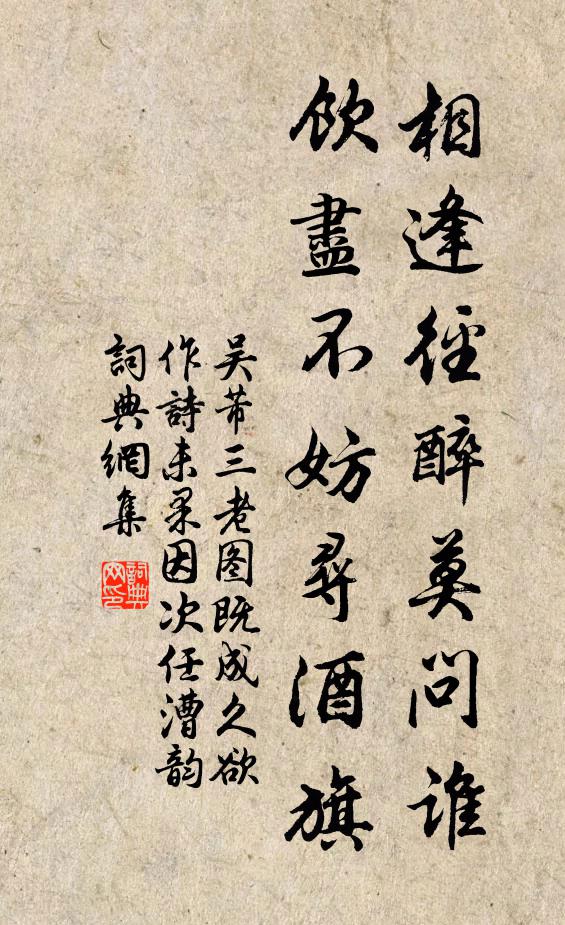 相逢径醉莫問誰
飲盡不妨尋酒旗
吴芾三老图既成久欲
作詩未果因次任漕韵
詞典網集
詞典网印